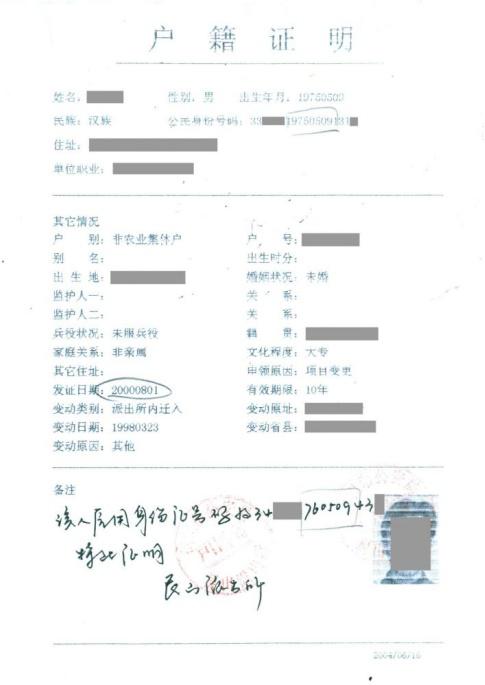 户籍证明
姓名: 性别: 男 出生年月: 19760509
民族: 汉族 公民身份号码: 33 19750509131
住址:
单位职业:
其它情况
户 别: 非农业集体户 户 号:
别 名: 出生时分:
出 生 地: 婚姻状况: 未婚
监护人一: 关 系:
监护人二: 关 系:
兵役状况: 未服兵役 籍 贯:
家庭关系: 非亲属 文化程度: 大专
其它住址: 申领原因: 项目变更
发证日期: 20000801 有效期限: 10年
变动类别: 派出所内迁入 变动原址:
变动日期: 19980323 变动省县:
变动原因: 其他
备注
该人居民身份证号码为34 76050943
特此证明
派出所
2004/06/16